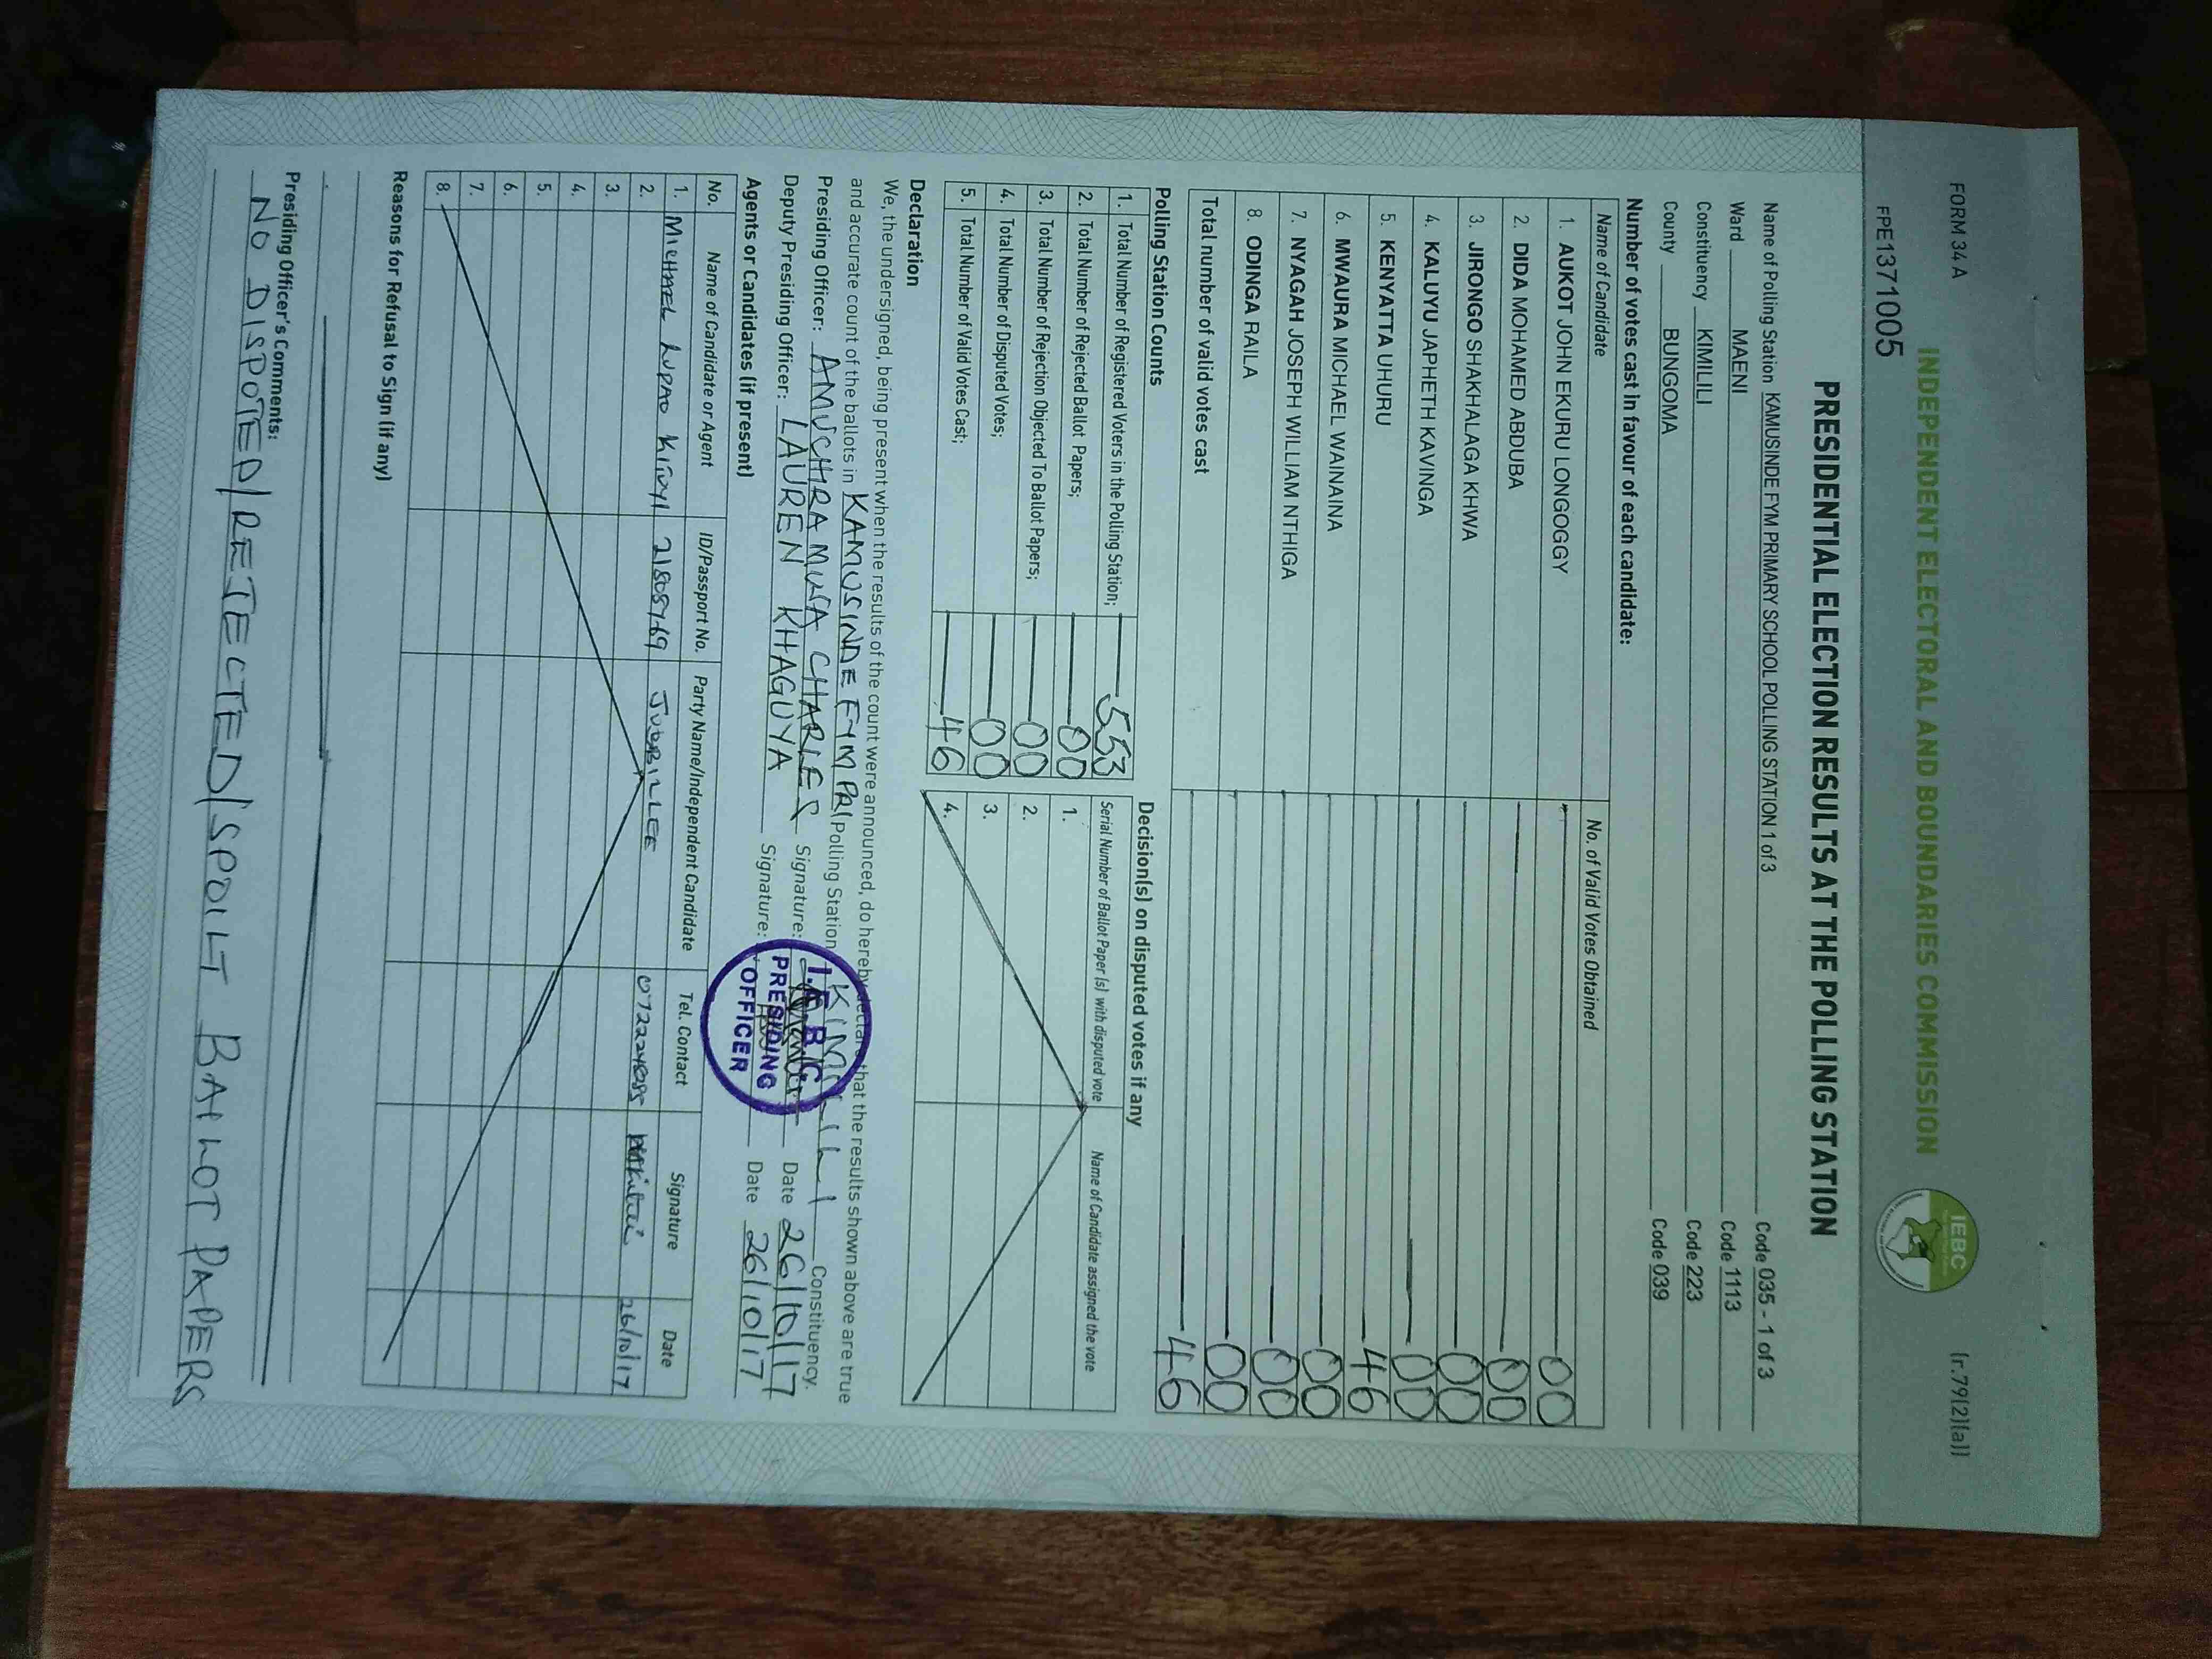 FORM 34A
(r.79(2)(a))
INDEPENDENT ELECTORAL AND BOUNDARIES COMMISSION
IEBC
FPE1371005
PRESIDENTIAL ELECTION RESULTS AT THE POLLING STATION
Name of Polling Station KAMUSINDE FYM PRIMARY SCHOOL POLLING STATION 1 of 3 Code 035 - 1 of 3
Ward MAENI Code 1113
Constituency KIMILILI Code 223
County BUNGOMA Code 039
Number of votes cast in favour of each candidate:
Name of Candidate No. of Valid Votes Obtained
1. AUKOT JOHN EKURU LONGOGGY 00
2. DIDA MOHAMED ABDUBA 00
3. JIRONGO SHAKHALAGA KHWA 00
4. KALUYU JAPHETH KAVINGA 00
5. KENYATTA UHURU 46
6. MWAURA MICHAEL WAINAINA 00
7. NYAGAH JOSEPH WILLIAM NTHIGA 00
8. ODINGA RAILA 00
Total number of valid votes cast 46
Polling Station Counts
1. Total Number of Registered Voters in the Polling Station; 553
2. Total Number of Rejected Ballot Papers; 00
3. Total Number of Rejection Objected To Ballot Papers; 00
4. Total Number of Disputed Votes; 00
5. Total Number of Valid Votes Cast; 46
Decision(s) on disputed votes if any
Serial Number of Ballot Paper (s) with disputed vote Name of Candidate assigned the vote
1.
2.
3.
4.
Declaration
We, the undersigned, being present when the results of the count were announced, do hereby declare that the results shown above are true
and accurate count of the ballots in KAMUSINDE FYM PRI Polling Station KIMILILI Constituency.
Presiding Officer: AMUCHRA MUSA CHARLES Signature: Date 26/10/17
Deputy Presiding Officer: LAUREN KHAGUYA Signature: Date 26/10/17
I.E.B.C
PRESIDING
OFFICER
Agents or Candidates (if present)
No. Name of Candidate or Agent ID/Passport No. Party Name/Independent Candidate Tel. Contact Signature Date
1. MICHAEL JUBILEE 26/10/17
2.
3.
4.
5.
6.
7.
8.
Reasons for Refusal to Sign (if any)
Presiding Officer's Comments:
NO DISPOTED/REJECTED/SPOILT BALLOT PAPERS